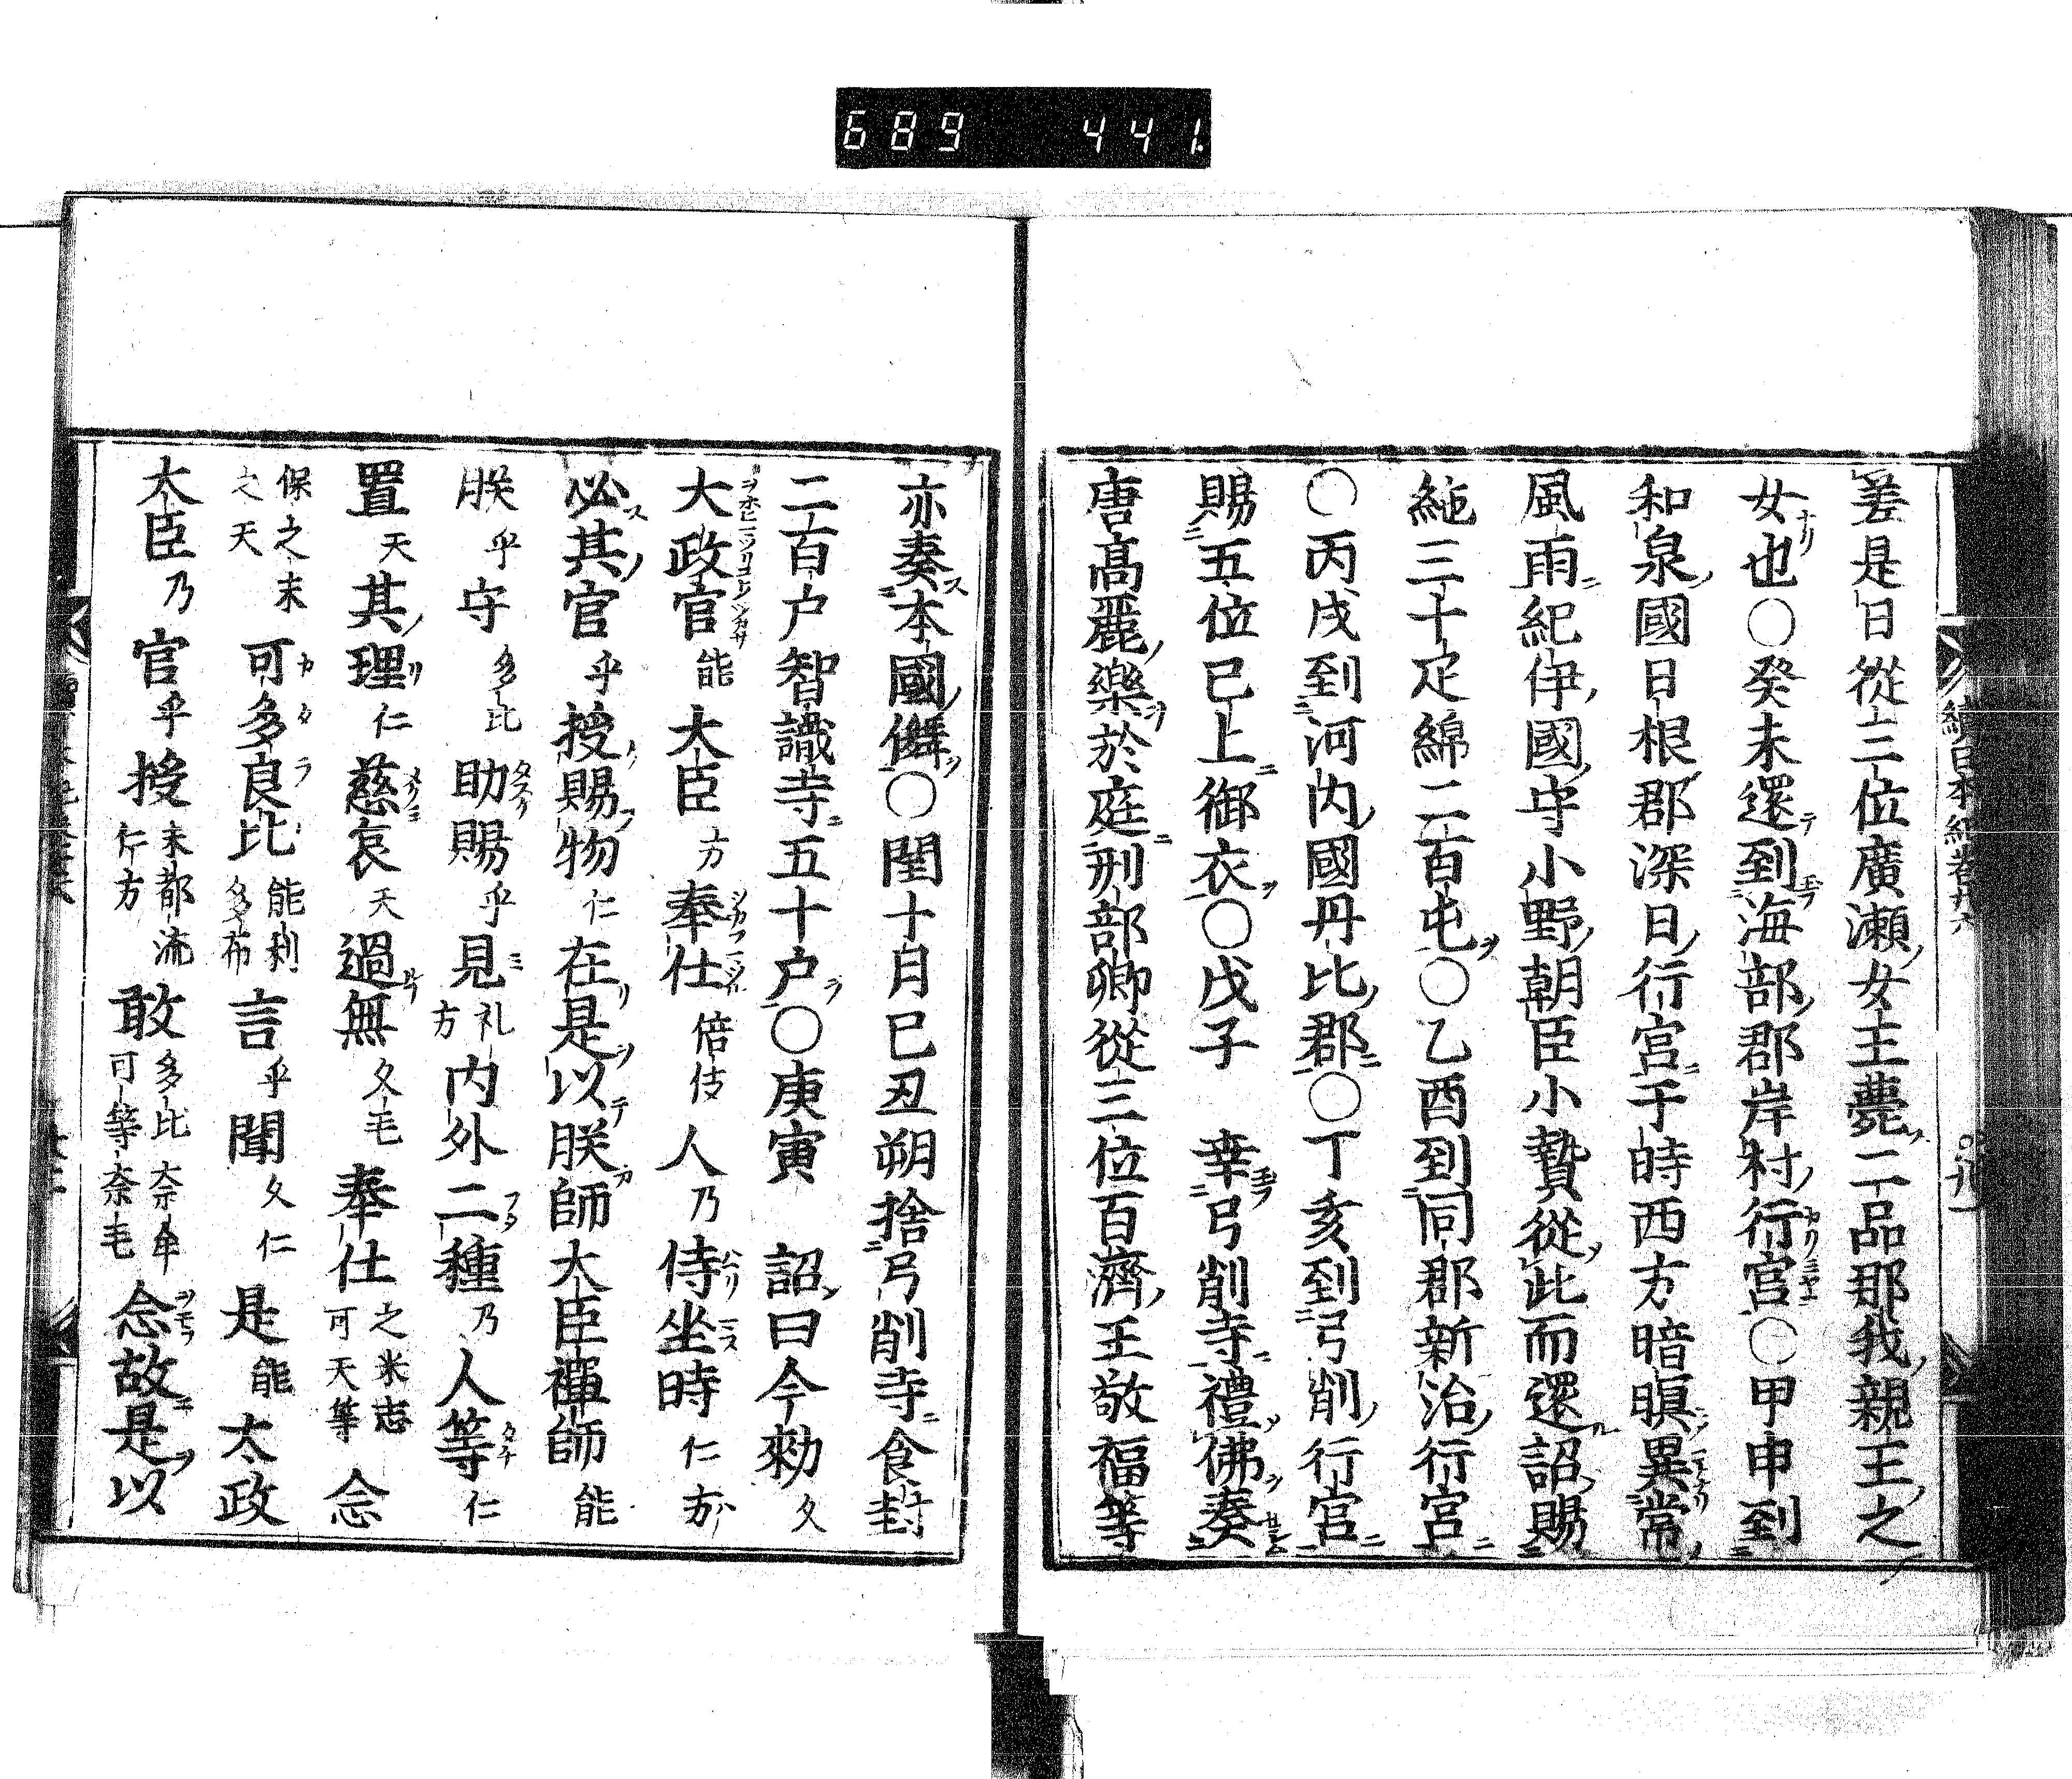 689 441.
差是日從三位廣瀬女王薨二品那我親王之
女也○癸未還到海部郡岸村行宮○甲申到
和泉國日根郡深日行宮于時西方暗暝異常
風雨紀伊國守小野朝臣小贄從此而還詔賜
絁三十疋綿二百屯○乙酉到同郡新治行宮
○丙戌到河内國丹比郡○丁亥到弓削行宮
賜五位已上御衣○戊子 幸弓削寺禮佛奏
唐高麗樂於庭刑部卿從三位百濟王敬福等
亦奏本國儛○閏十月已丑朔捨弓削寺食封
二百户智識寺五十户○庚寅 詔曰今勑久
大政官能大臣方奉仕倍伎人乃侍坐時仁方
必其官乎授賜物仁在是以朕師大臣禪師能
朕乎守多比助賜乎見礼方内外二種乃人等仁
置天其理仁慈哀天過無久毛奉仕之米志可天等念
保之末之天可多良比能利多布言乎聞久仁是能太政
大臣乃官乎授末都流仁方敢多比奈牟可等奈毛念故是以